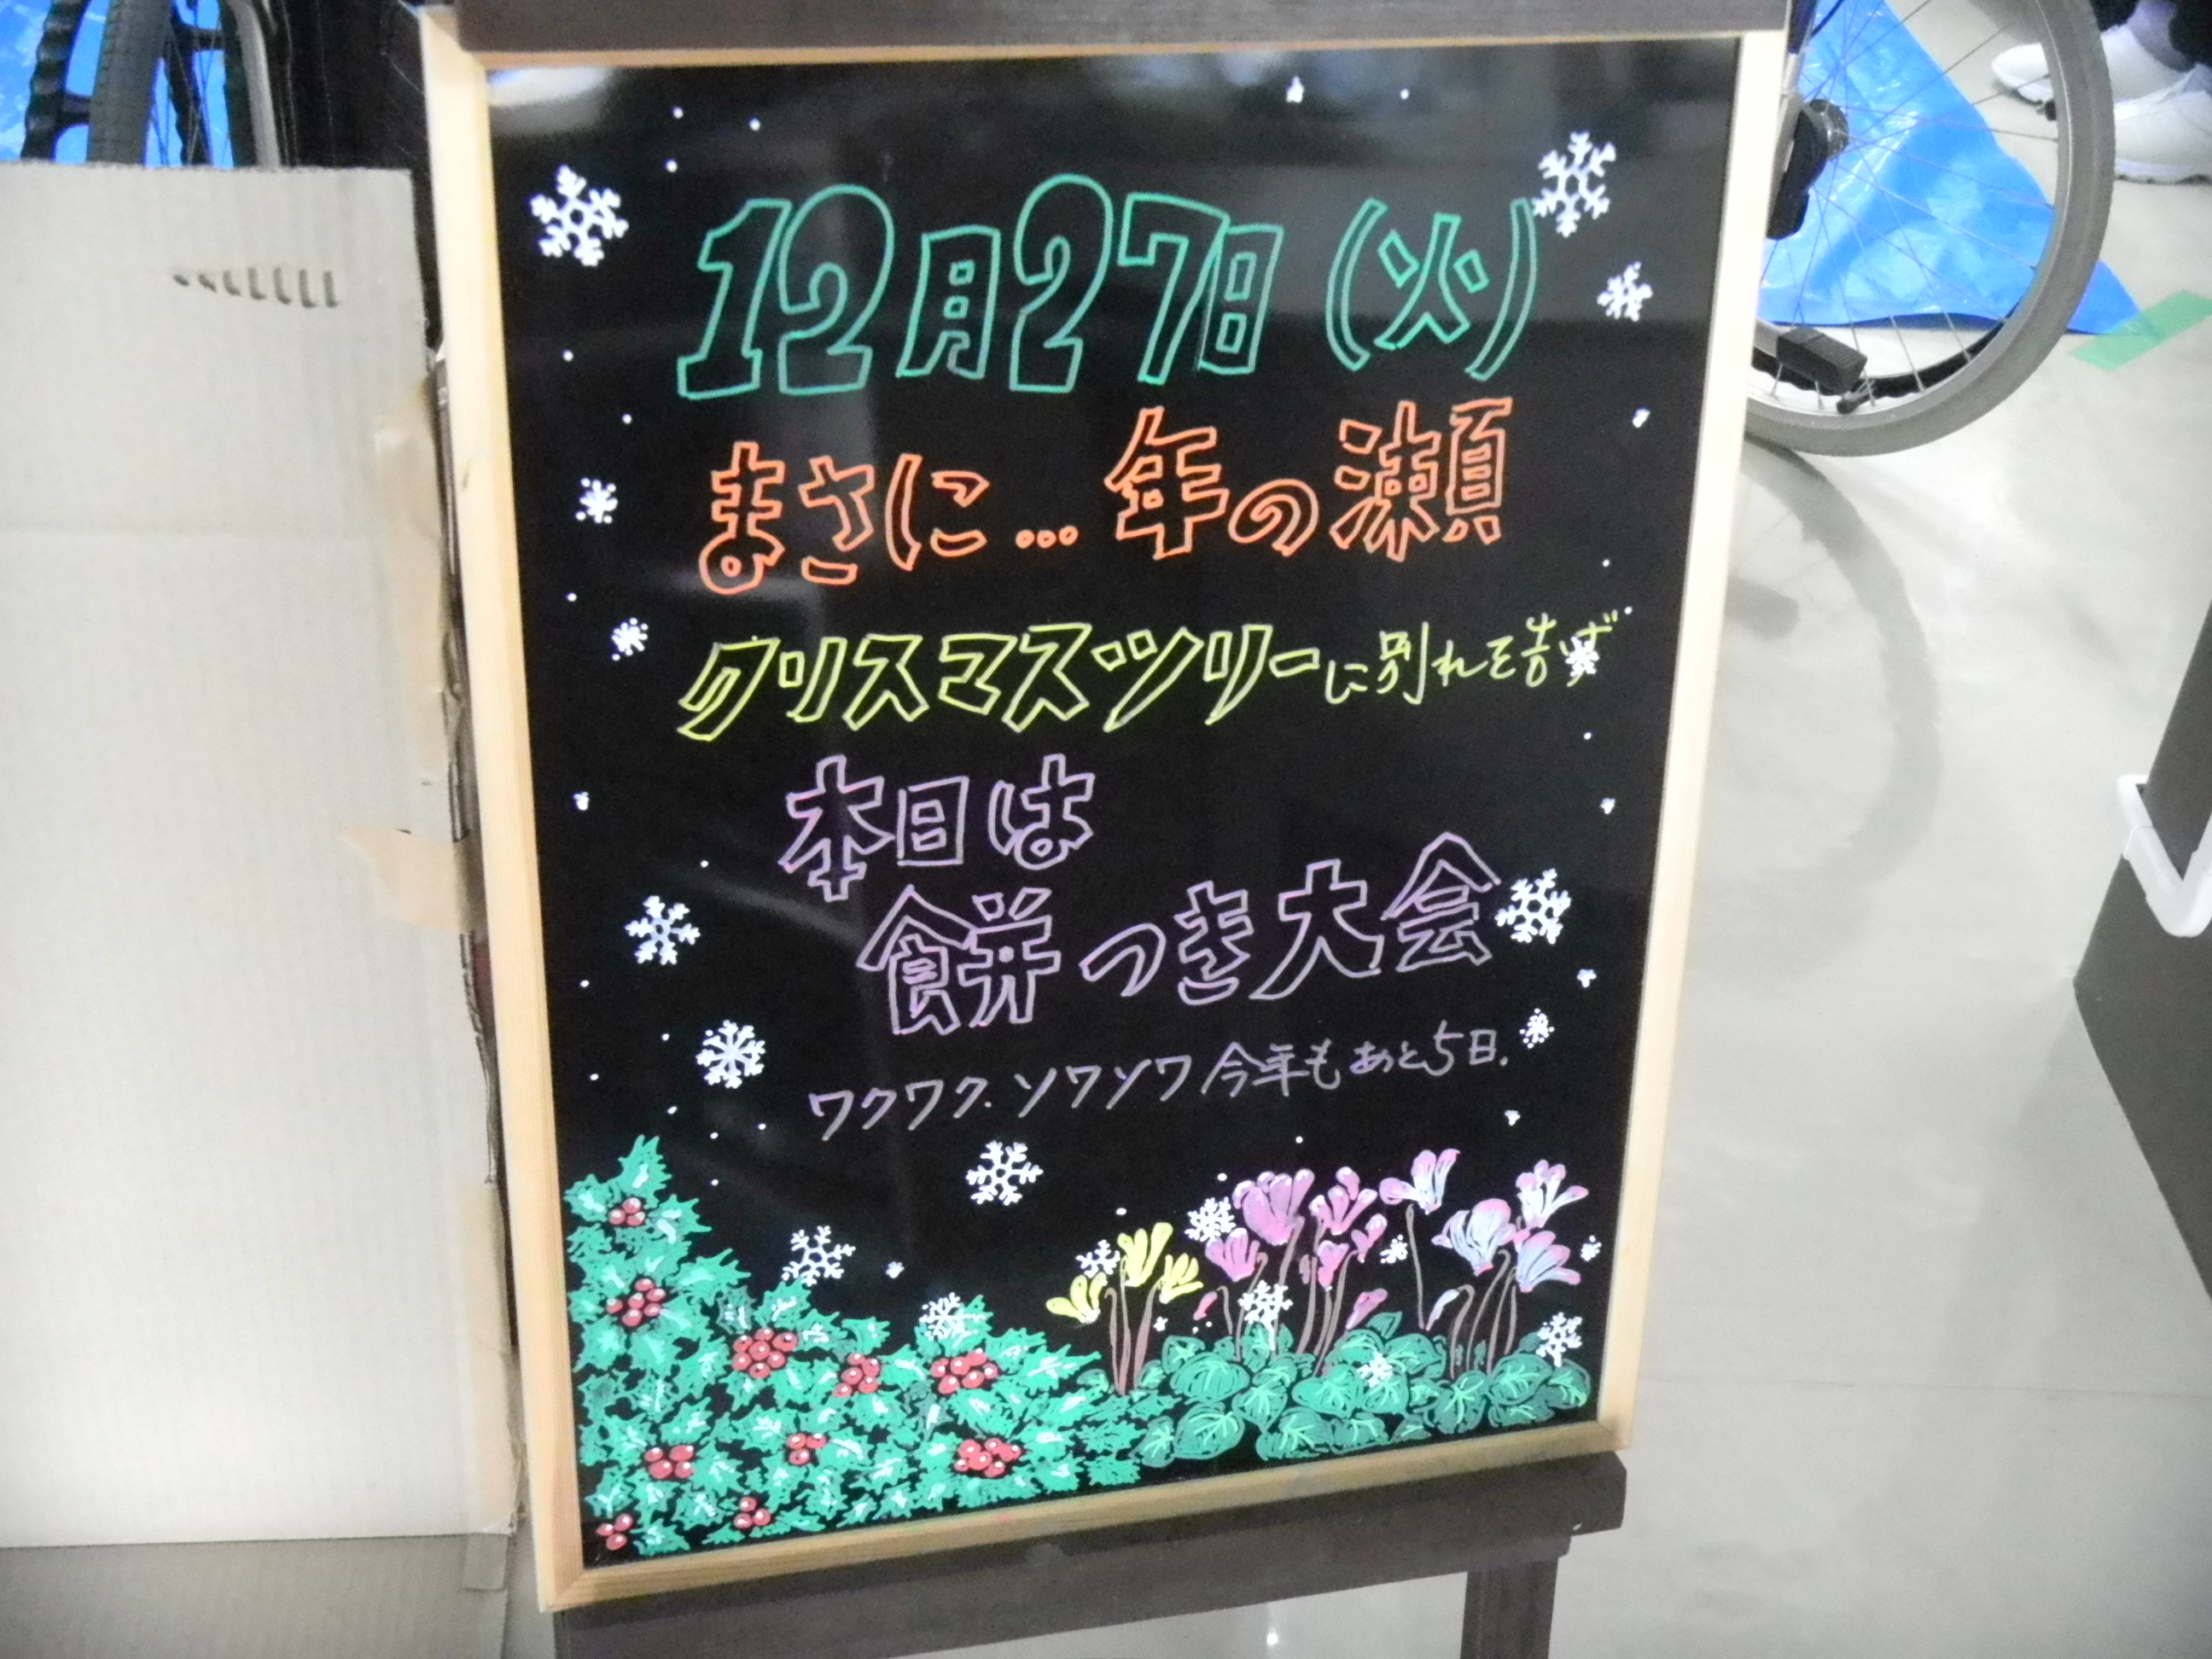 12月27日(火)
まさに…年の瀬
クリスマスツリーに別れを告げ
本日は
餅つき大会
ワクワク.ソワソワ今年もあと5日.